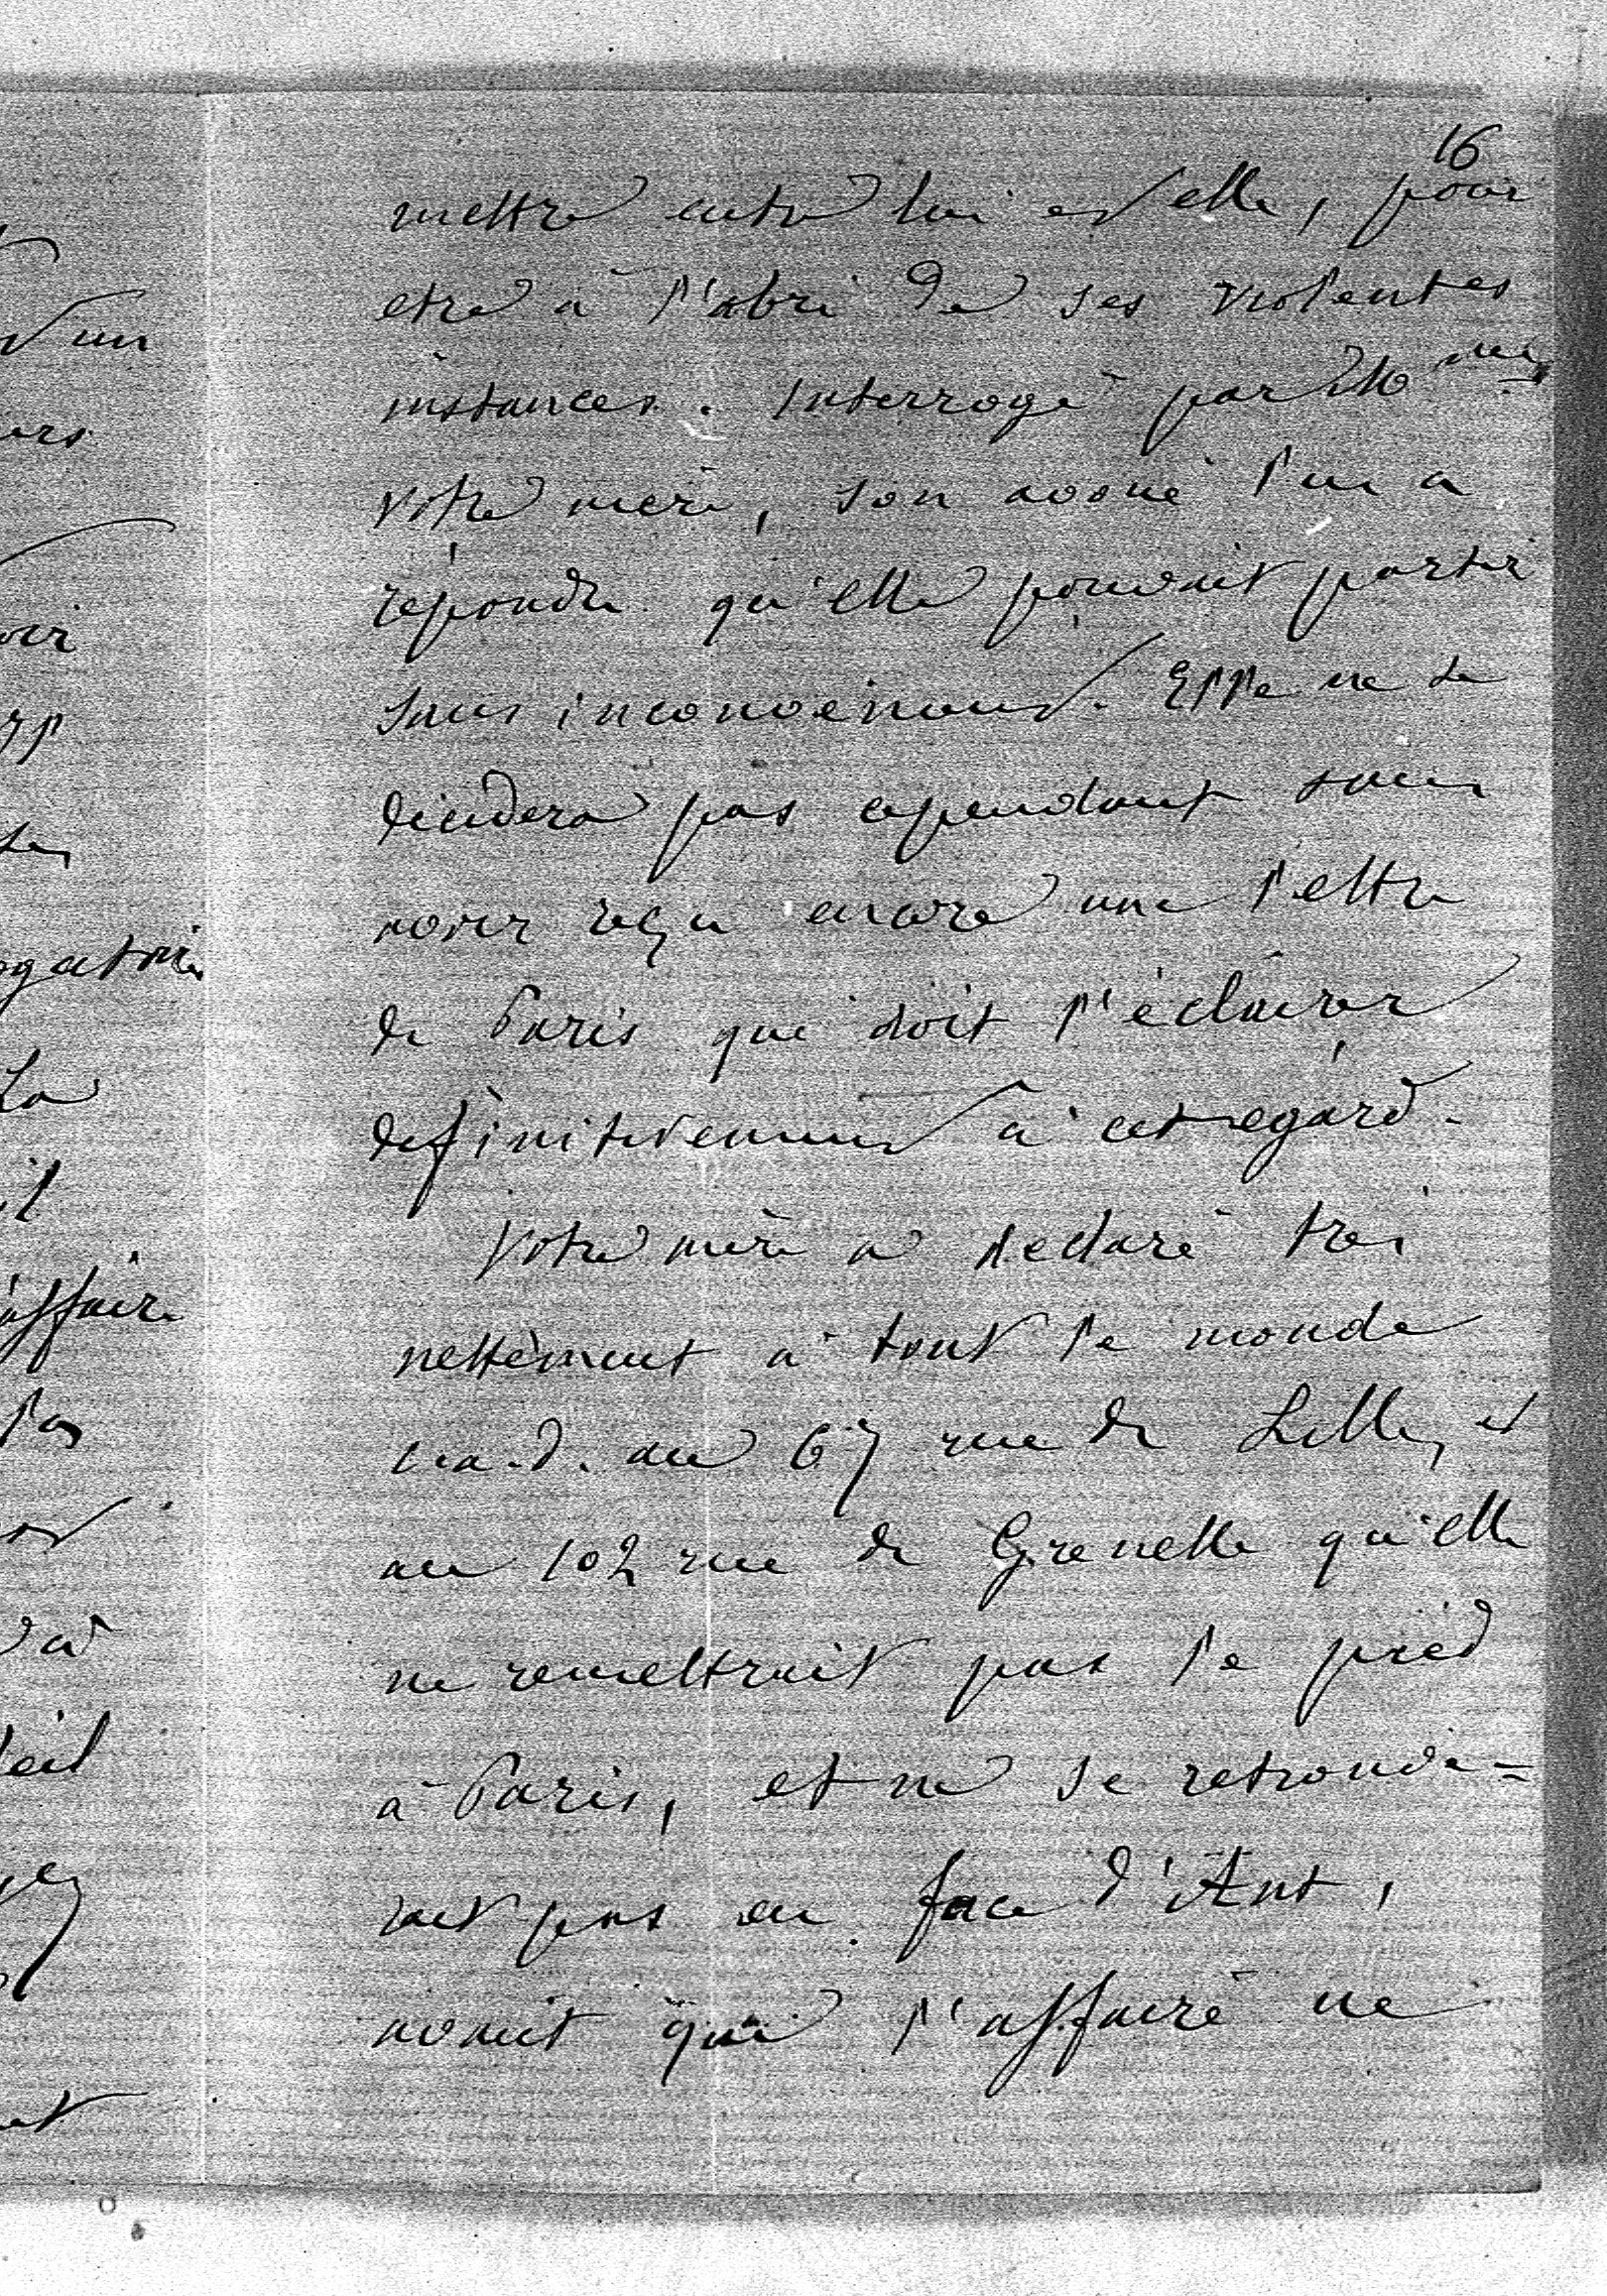 16
mettre entre lui et elle, pour
etre à l'abri de ses violentes
instances. Interrogé par Mme
votre mère, son avoué lui a
répondu qu'elle pouvait partir
sans inconvénient. Elle ne se
décidera pas cependant sans
avoir reçu encore une lettre
de Paris qui doit l'éclairer
définitivement à cet egard.
Votre mère a declaré très
nettement à tout le monde
c.a.d. au 67 rue de Lille, et
au 102 rue de Grenelle qu'elle
ne remettrait pas le pied
à Paris, et ne se retrouve=
rait pas en face d'Ant,
avant que l'affaire ne